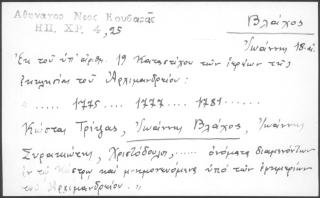 Αθηναγορ Νεος Κουβαρᾶς
ΗΠ. ΧΡ. 4, 25
Βλάχος
Ἰωάννης 18 αἰ.
Ἐκ τοῦ ὑπ' ἀριθ. 19 Καταστίχου τῶν ἐφέσων τῆς
ἐκκλησίας τοῦ Ἀρχιμανδρείου:
" ..... 1775 .... 1777 .... 1781 ......
Κώστας Τρίψας, Ἰωάννης Βλάχος, Ἰωάννης
Στρατιώτης, Χριστόδουλος, ..... ὀνόματα διαμενόντων
ἐν τῷ Κάστρῳ καὶ μνημονευόμενα ὑπὸ τῶν ἐφημερίων
τοῦ Ἀρχιμανδρείου. "